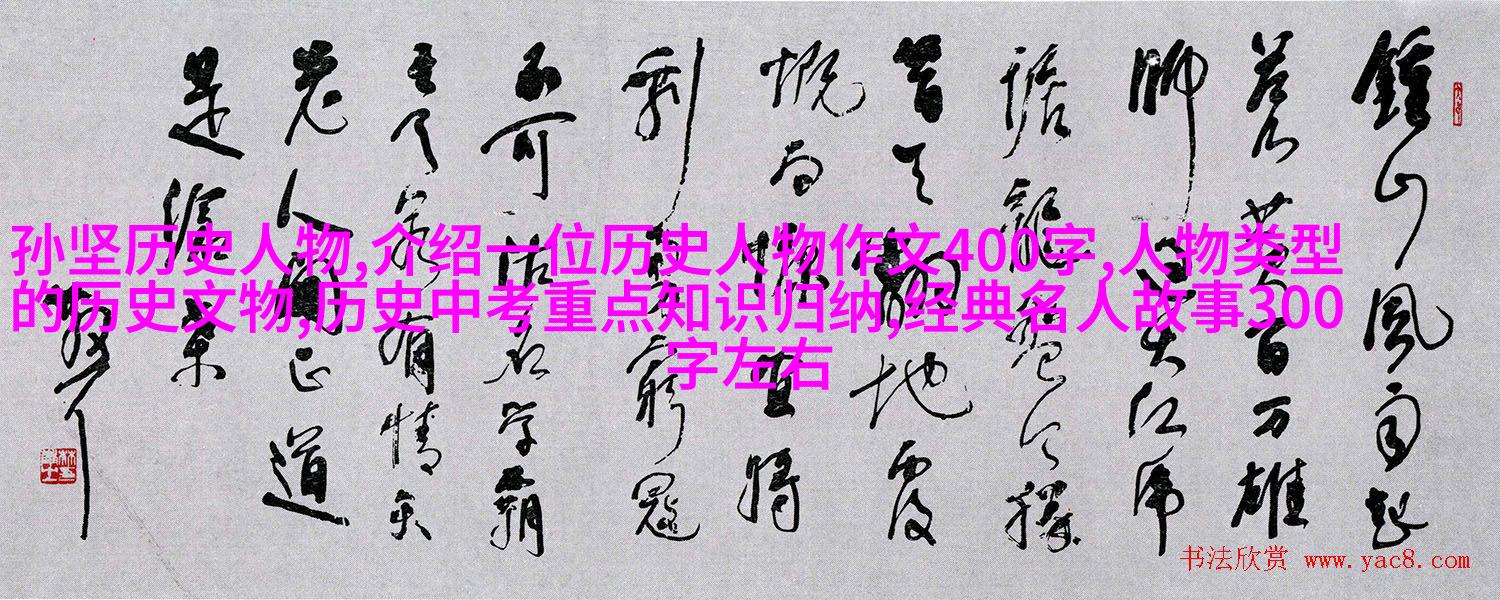 孙坚历史人物,介绍一位历史人物作文400字,人物类型
的历史文物,历史中考重点知识归纳,经典名人故事300
字左右
鐘山風雨起
蒼黄百万雄
師過大江虎
踞龍盤今勝
昔天翻地覆
慨而慷宜将
剩勇追窮寇
不可沽名学霸
王天若有情天
老人間正道
是滄桑
书法欣赏 www.yac8.com